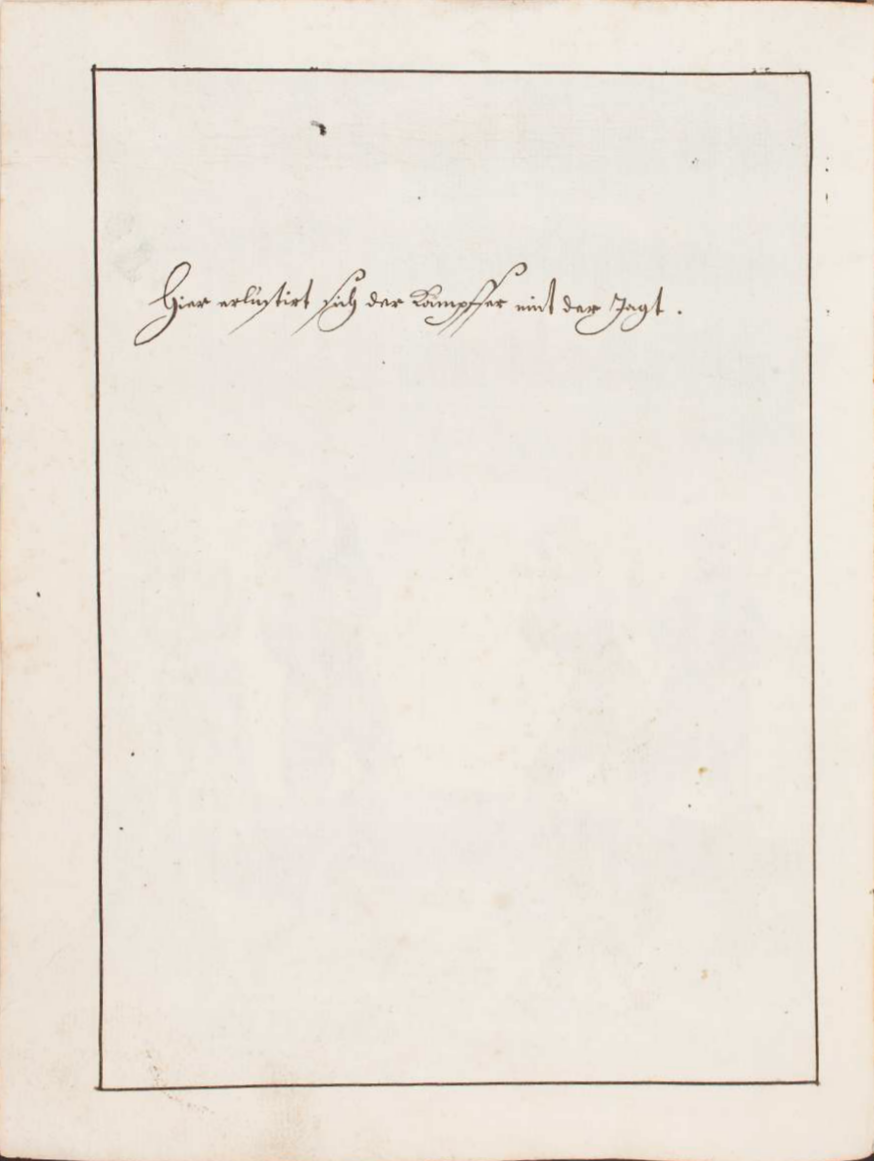 Hier erlustirt sich der Kämpffer mit der Jagt.